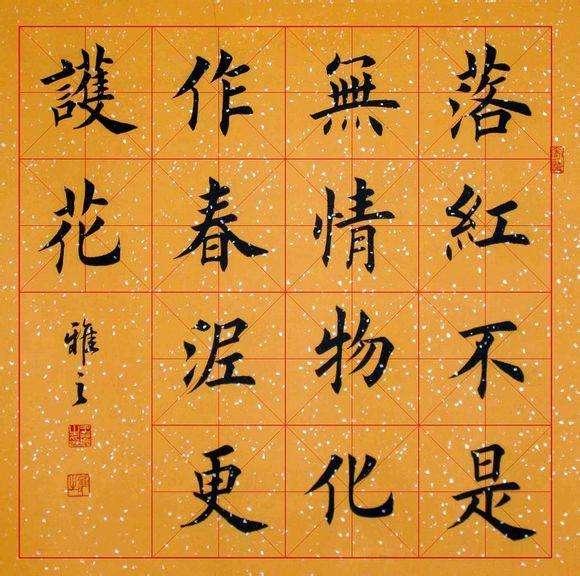 落紅不是
無情物化
作春泥更
護花
雅之